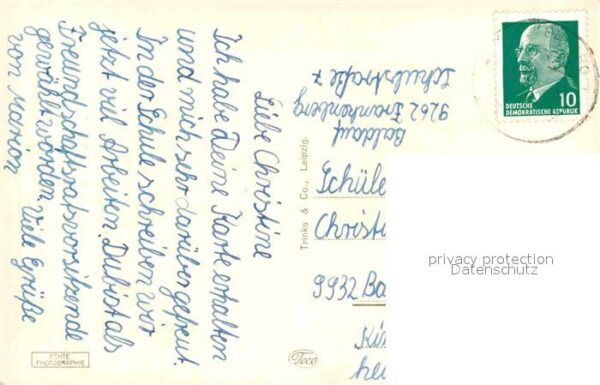 Liebe Christine
Ich habe Deine Karte erhalten
und mich sehr darüber gefreut.
In der Schule schreiben wir
jetzt viel Arbeiten. Du bist als
Freundschaftsratsvorsitzende
gewählt worden. Viele Grüße
von Marion
Baldauf
9262 Frankenberg
Schulstraße 7
Trinks & Co., Leipzig.
Schüle
Christi
9932 Ba
DEUTSCHE
DEMOKRATISCHE REPUBLIK
10
privacy protection
Datenschutz
ECHTE
PHOTOGRAPHIE
Teco